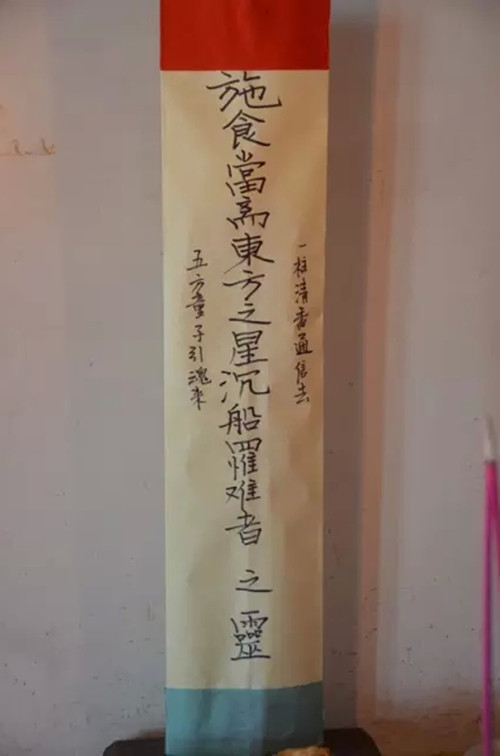 一柱清香通信去
施食當斎東方之星沉船罹难者之靈
五方童子引魂来